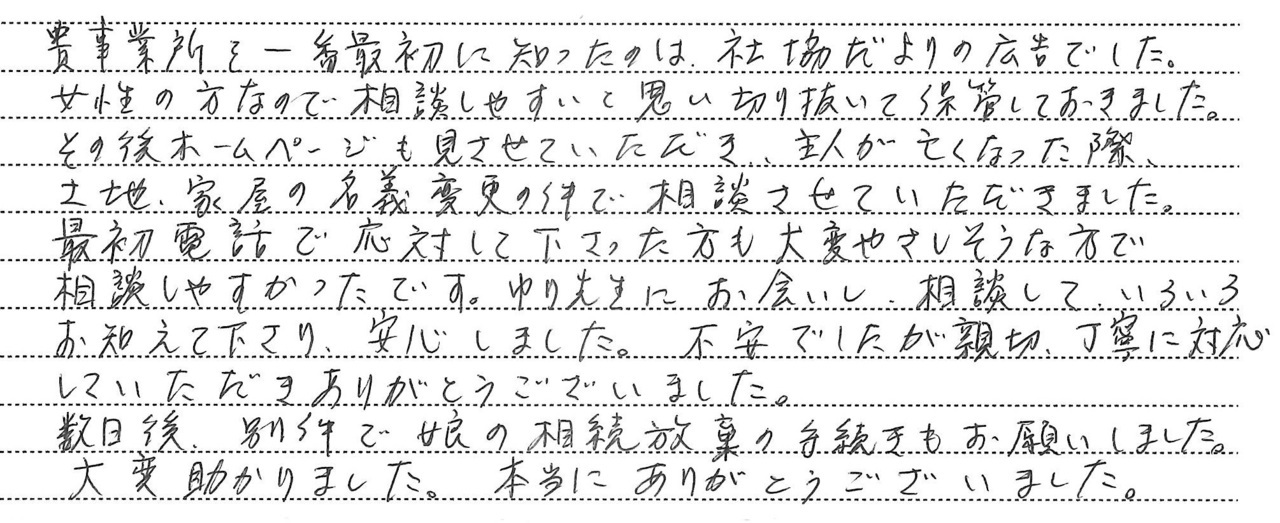 貴事業所を一番最初に知ったのは、社協だよりの広告でした。
女性の方なので相談しやすいと思い切り抜いて保管しておきました。
その後ホームページも見させていただき、主人が亡くなった際、
土地、家屋の名義変更の件で相談させていただきました。
最初電話で応対して下さった方も大変やさしそうな方で
相談しやすかったです。ゆり先生にお会いし、相談して、いろいろ
お知えて下さり、安心しました。不安でしたが親切、丁寧に対応
していただきありがとうございました。
数日後、別件で娘の相続放棄の手続きもお願いしました。
大変助かりました。本当にありがとうございました。